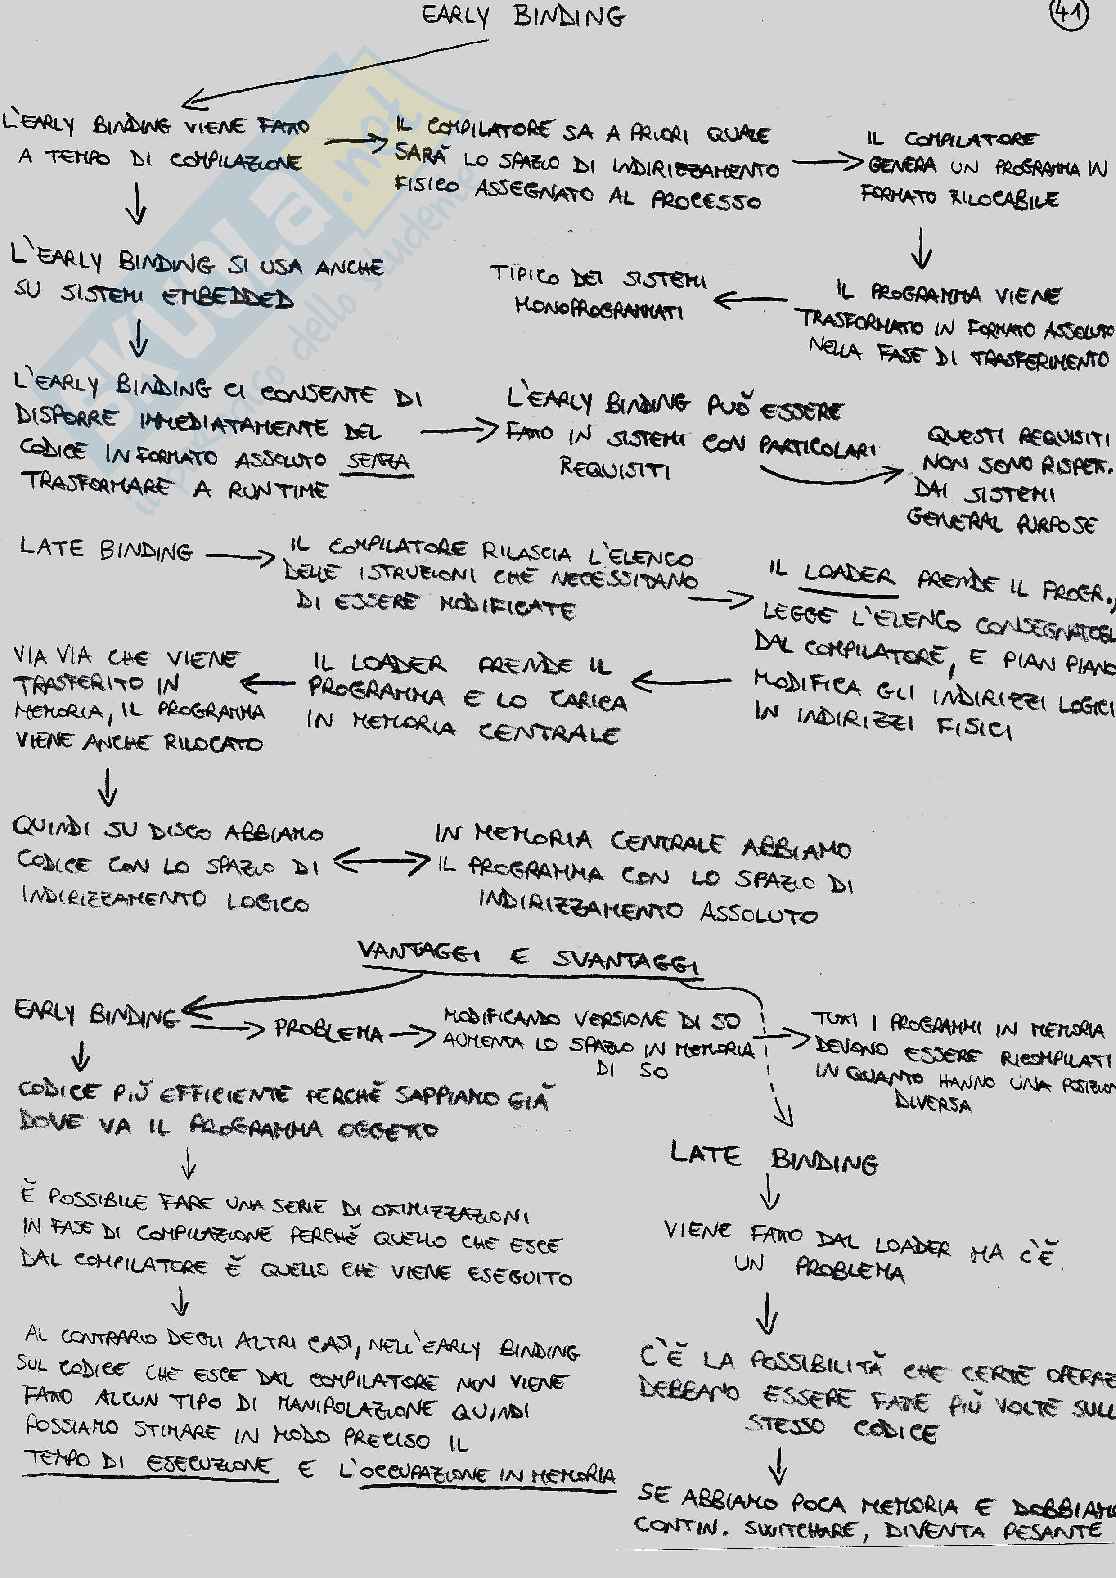 EARLY BINDING
41
L'EARLY BINDING VIENE FATTO
A TEMPO DI COMPILAZIONE
IL COMPILATORE SA A PRIORI QUALE
SARÀ LO SPAZIO DI INDIRIZZAMENTO
FISICO ASSEGNATO AL PROCESSO
IL COMPILATORE
GENERA UN PROGRAMMA IN
FORMATO RILOCABILE
IL PROGRAMMA VIENE
TRASFORMATO IN FORMATO ASSOLUTO
NELLA FASE DI TRASFERIMENTO
TIPICO DEI SISTEMI
MONOPROGRAMMATI
L'EARLY BINDING SI USA ANCHE
SU SISTEMI EMBEDDED
L'EARLY BINDING CI CONSENTE DI
DISPORRE IMMEDIATAMENTE DEL
CODICE IN FORMATO ASSOLUTO SENZA
TRASFORMARE A RUNTIME
L'EARLY BINDING PUÒ ESSERE
FATTO IN SISTEMI CON PARTICOLARI
REQUISITI
QUESTI REQUISITI
NON SONO RISPET.
DAI SISTEMI
GENERAL PURPOSE
LATE BINDING
IL COMPILATORE RILASCIA L'ELENCO
DELLE ISTRUZIONI CHE NECESSITANO
DI ESSERE MODIFICATE
IL LOADER PRENDE IL PROGR.,
LEGGE L'ELENCO
DAL COMPILATORE, E PIAN PIANO
MODIFICA GLI INDIRIZZI LOGICI
IN INDIRIZZI FISICI
IL LOADER PRENDE IL
PROGRAMMA E LO CARICA
IN MEMORIA CENTRALE
VIA VIA CHE VIENE
TRASFERITO IN
MEMORIA, IL PROGRAMMA
VIENE ANCHE RILOCATO
QUINDI SU DISCO ABBIAMO
CODICE CON LO SPAZIO DI
INDIRIZZAMENTO LOGICO
IN MEMORIA CENTRALE ABBIAMO
IL PROGRAMMA CON LO SPAZIO DI
INDIRIZZAMENTO ASSOLUTO
VANTAGGI E SVANTAGGI
EARLY BINDING
PROBLEMA
MODIFICANDO VERSIONE DI SO
AUMENTA LO SPAZIO IN MEMORIA
DI SO
TUTTI I PROGRAMMI IN MEMORIA
DEVONO ESSERE RICOMPILATI
IN QUANTO HANNO UNA POSIZION
DIVERSA
CODICE PIÙ EFFICIENTE PERCHÈ SAPPIAMO GIÀ
DOVE VA IL PROGRAMMA OGGETTO
È POSSIBILE FARE UNA SERIE DI OTTIMIZZAZIONI
IN FASE DI COMPILAZIONE PERCHÈ QUELLO CHE ESCE
DAL COMPILATORE È QUELLO CHE VIENE ESEGUITO
AL CONTRARIO DEGLI ALTRI CASI, NELL'EARLY BINDING
SUL CODICE CHE ESCE DAL COMPILATORE NON VIENE
FATTO ALCUN TIPO DI MANIPOLAZIONE QUINDI
POSSIAMO STIMARE IN MODO PRECISO IL
TEMPO DI ESECUZIONE E L'OCCUPAZIONE IN MEMORIA
LATE BINDING
VIENE FATTO DAL LOADER MA C'È
UN PROBLEMA
C'È LA POSSIBILITÀ CHE CERTE OPERAZ
DEBBANO ESSERE FATTE PIÙ VOLTE SULL
STESSO CODICE
SE ABBIAMO POCA MEMORIA E DOBBIAMO
CONTIN. SWITCHARE, DIVENTA PESANTE
SKUOLA.net
dello studente